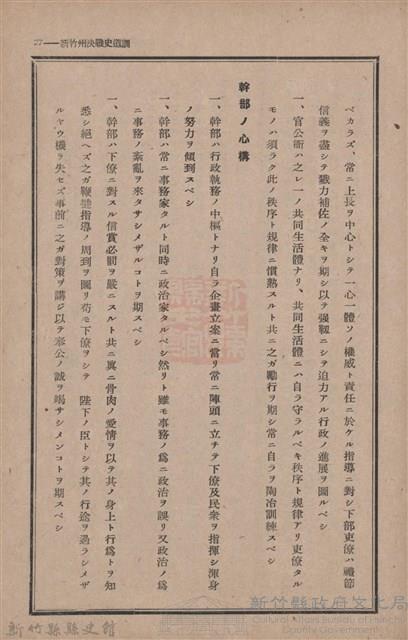 訓道史吏戰決州竹新——27
ベカラズ、常ニ上長ヲ中心トシテ一心一體ソノ權威ト責任ニ於ケル指導ニ對シ下部吏僚ハ禮節
信義ヲ盡シテ戮力補佐ノ全キヲ期シ以テ强靱ニシテ迫力アル行政ノ進展ヲ圖ルベシ
一、官公衙ハ之レ一ノ共同生活體ナリ、共同生活體ニハ自ラ守ラルベキ秩序ト規律アリ吏僚タル
モノハ須ラク此ノ秩序ト規律ニ慣熟スルト共ニ之ガ勵行ヲ期シ常ニ自ラヲ陶冶訓練スベシ
幹部ノ心構
一、幹部ハ行政執務ノ中樞トナリ自ラ企畫立案ニ當リ常ニ陣頭ニ立チテ下僚及民衆ヲ指揮シ渾身
ノ努力ヲ傾倒スベシ
一、幹部ハ常ニ事務家タルト同時ニ政治家タルベシ然リト雖モ事務ノ爲ニ政治ヲ誤リ又政治ノ爲
ニ事務ノ紊亂ヲ來タサシメザルコトヲ期スベシ
一、幹部ハ下僚ニ對スル信賞必罰ヲ嚴ニスルト共ニ眞ニ骨肉ノ愛情ヲ以テ其ノ身上ト行爲トヲ知
悉シ絕ヘズ之ガ鞭撻指導ノ周到ヲ圖リ苟モ下僚ヲシテ　陛下ノ臣トシテ其ノ行途ヲ過ラシメザ
ルヤウ機ヲ失セズ事前ニ之ガ對策ヲ講ジ以テ奉公ノ誠ヲ竭サシメンコトヲ期スベシ
新竹縣縣史館
新竹縣政府文化局
Cultural Affairs Bureau of Hsinchu
County Government